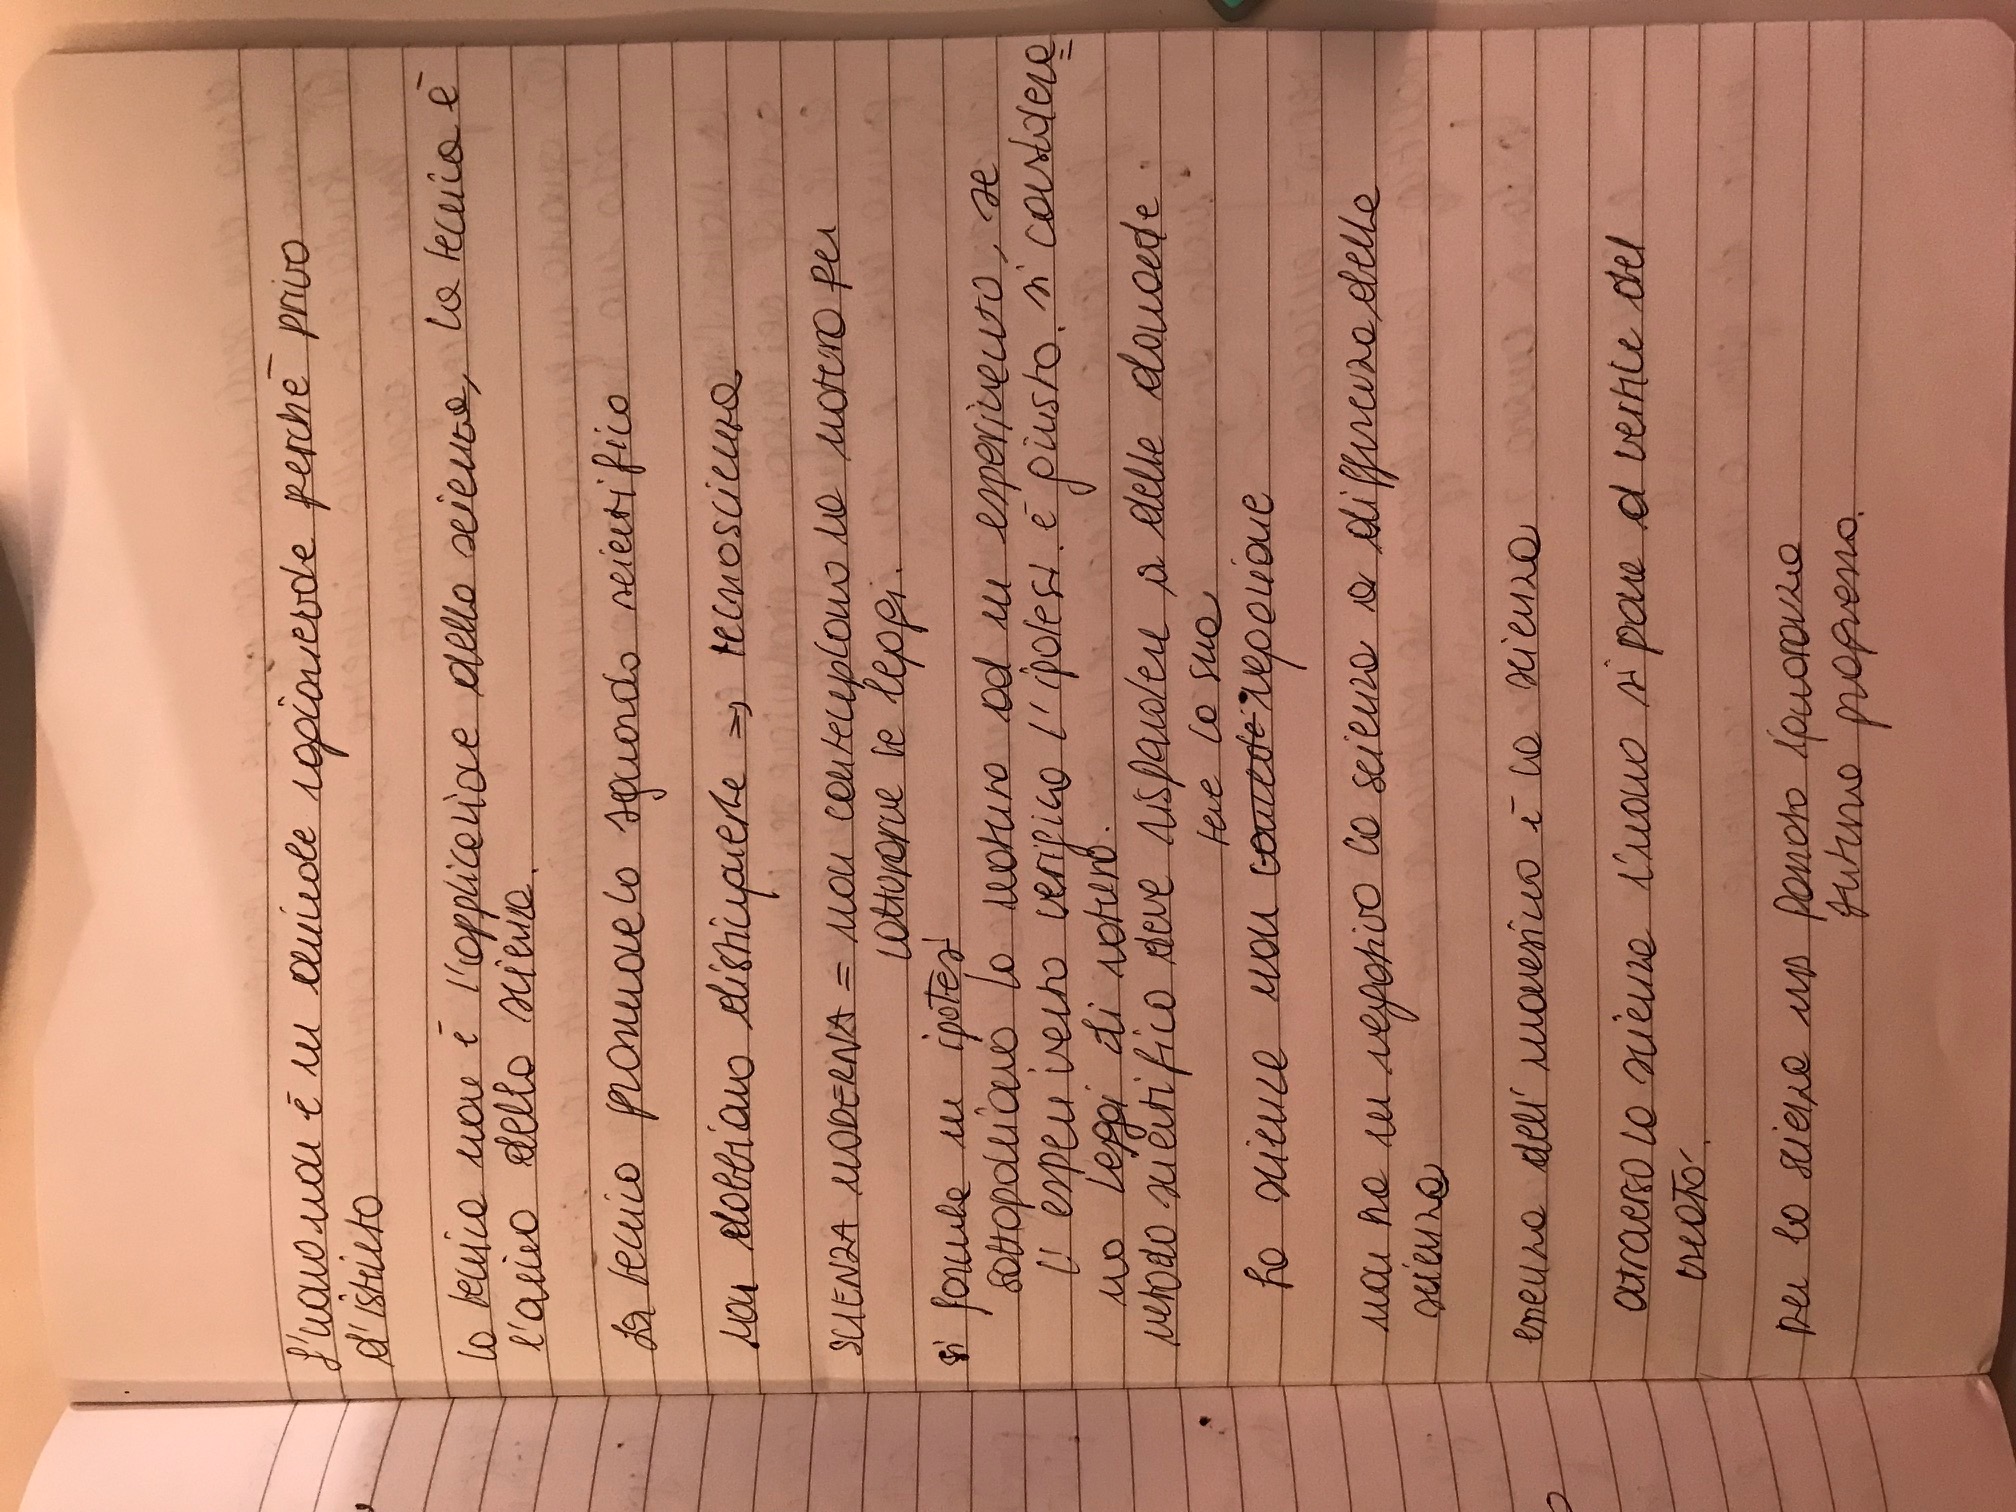 L'uomo non è un animale ragionevole perchè privo
d'istinto
la tecnica non è l'applicazione della scienza, la tecnica è
l'anima della scienza.
La tecnica promuove lo sguardo scientifico
non dobbiamo distinguerle => tecnoscienza
SCIENZA MODERNA = non contempliamo la natura per
catturarne le leggi.
si formula un ipotesi
sottoponiamo la natura ad un esperimento, se
l'esperimento verifica l'ipotesi è giusta. si considera
no leggi di natura.
metodo scientifico deve rispondere a delle domande.
tue la sua
ha scienze non religione
non ha un negativo la scienza a differenza della
scienza
essenza dell'umanesimo è la scienza
attraverso la scienza l'uomo si pone al vertice del
creato.
per la scienza un passato ignoranza
futuro progresso.